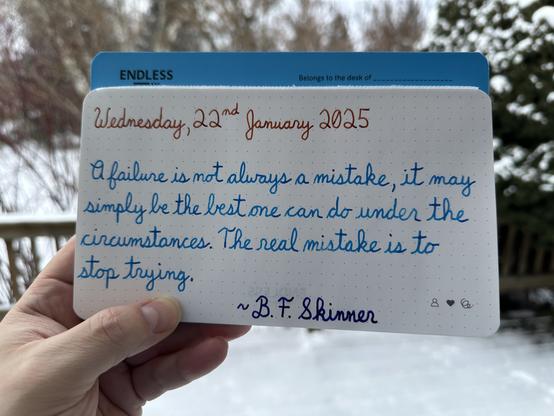 ENDLESS
Belongs to the desk of
Wednesday, 22nd January 2025
A failure is not always a mistake, it may
simply be the best one can do under the
circumstances. The real mistake is to
stop trying.
~B.F. Skinner